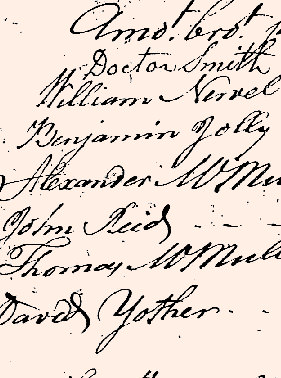 Amo.t bro.t
Doctor Smith
William Newel
Benjamin Jolly
Alexander McMu
John Reid
Thomas McMull
David Yother